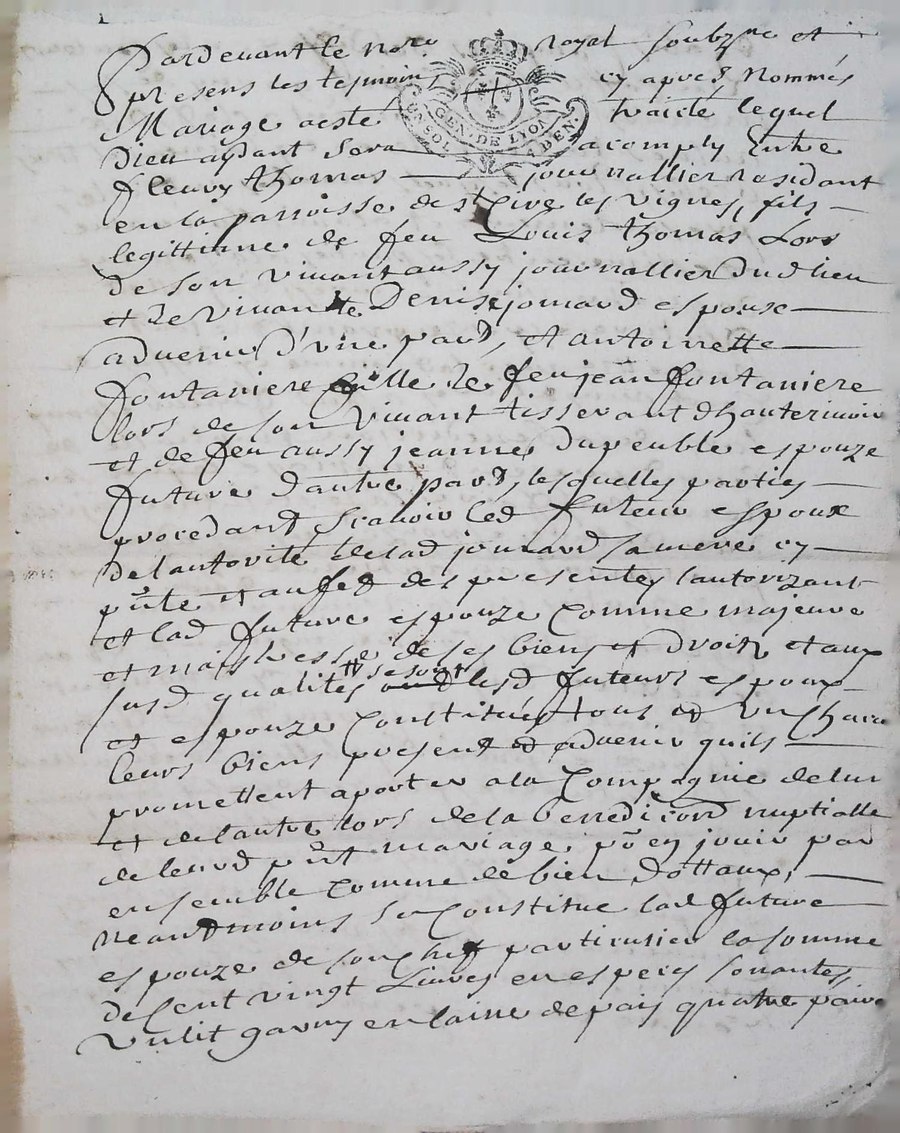 Pardevant le nore royal soubzne et
presens les tesmoins cy apres nommés
GEN. DE LYON
UN SOL A DEN.
Mariage aesté traité lequel
Dieu aydant sera acomply Entre
fleury thomas journallier residant
en la parroisse de st les vignes, fils
legittime de feu Louis thomas Lors
de son vivant aussy journallier dud lieu
et de vivante Denise jomard espoux
advenir d'une part, et antoinette
fontaniere fille de feu jean fontaniere
lors de son vivant tisserant dhauterivoir
et de feu aussy jeanne Dupeuble espouze
future d'autre part, lesquelles parties
procedant scavoir led futeur espoux
de l'autorité de lad jomard sa mere cy
pnte et aufet des presentes l'autorizant
et lad future espouze comme majeure
et maistresse de ses biens et droitz et aux
susd qualites se sont lesd futeurs espoux
et espouze constitués tous et un chacun
leurs biens present et advenir quils
promettent aporter a la compagnie de lun
et de lautre lors de la benediction nuptialle
de leurd pnt mariage, po en jouir par
ensemble comme de bien dottaux,
neantmoins se constitue lad future
espouze de son chef particulier la somme
de sent vingt Livres en especes sonantes,
un lit garny en laine de pais quatre paire